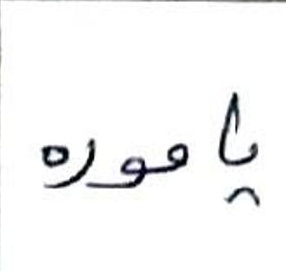 یا موره